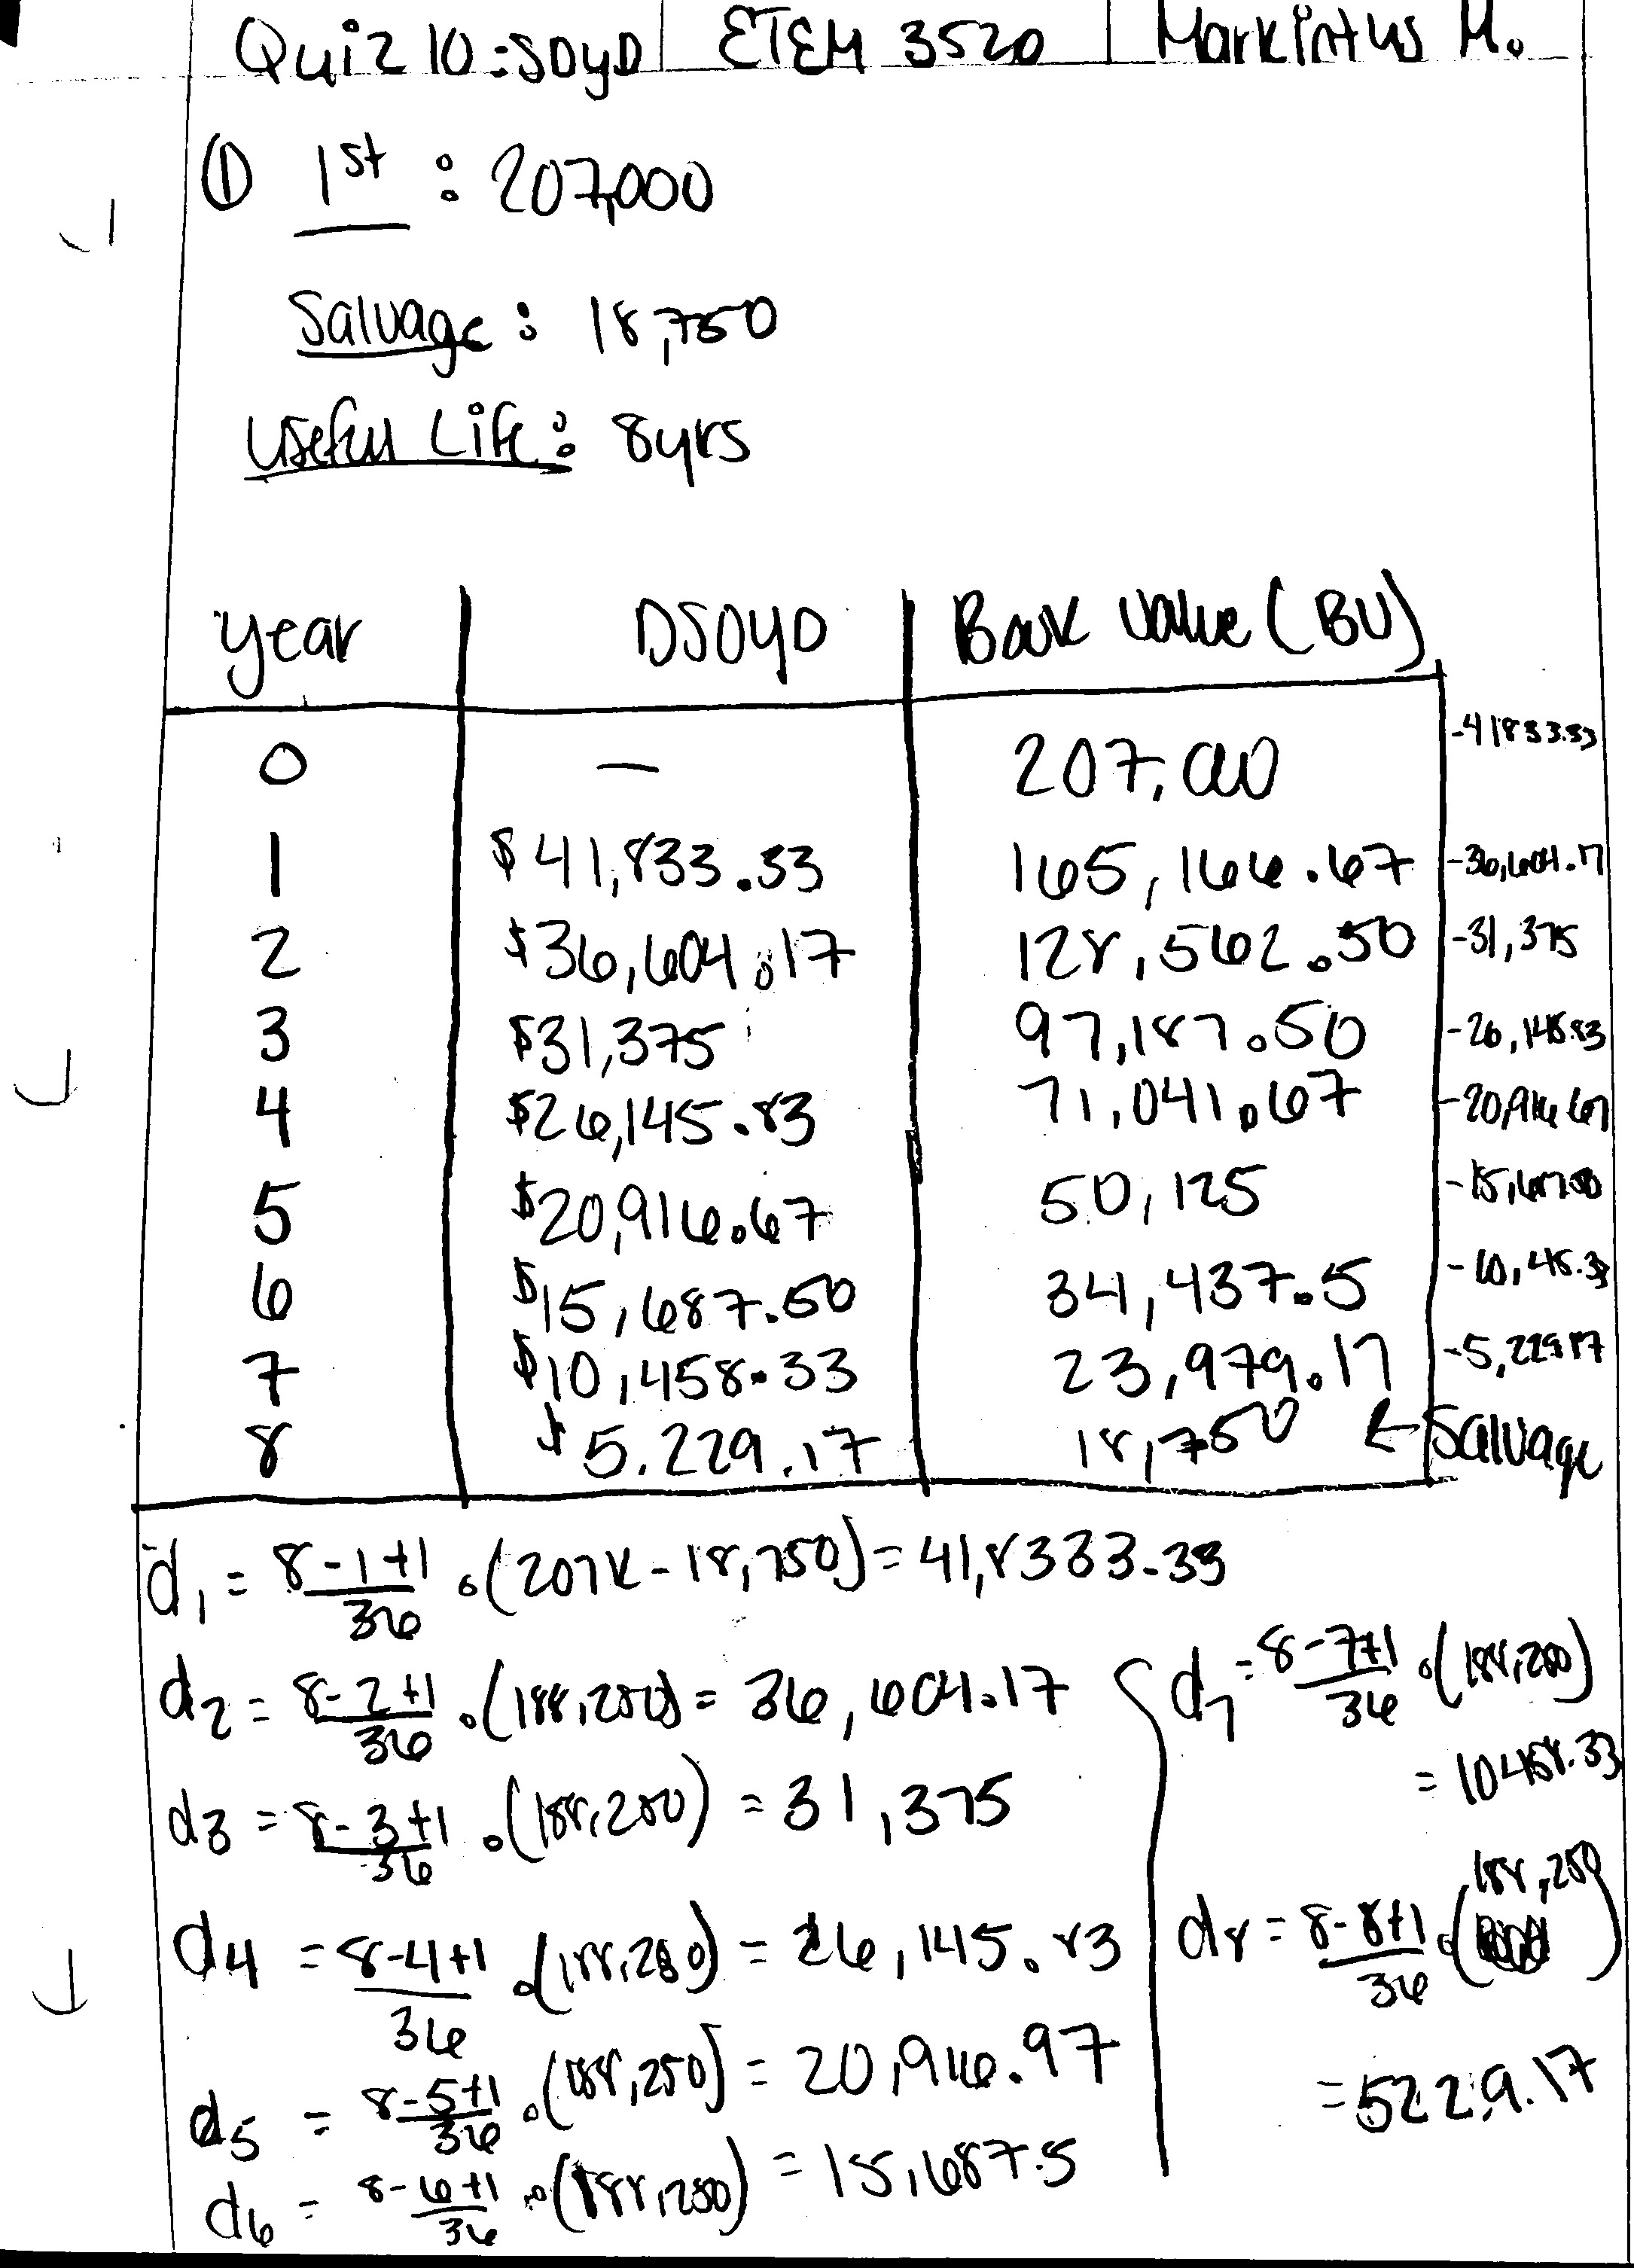 Quiz 10:SOYD | ETEM 3520 | Markintus M.
① 1st : 207,000
Salvage: 18,750
Useful Life: 8yrs
year DSOYD Book Value (BV)
0 — 207,000 -41833.33
1 $41,833.33 165,166.67 -36,604.17
2 $36,604.17 128,562.50 -31,375
3 $31,375 97,187.50 -26,145.83
4 $26,145.83 71,041.67 -20,916.67
5 $20,916.67 50,125
6 $15,687.50 34,437.5
7 $10,458.33 23,979.17 -5,229.17
8 $5.229.17 18,750 ← Salvage
d1 = 8-1+1/36 · (207K-18,750) = 41,8333.33
d2 = 8-2+1/36 · (188,250) = 36,604.17
d3 = 8-3+1/36 · (188,250) = 31,375
d4 = 8-4+1/36 · (188,250) = 26,145.83
d5 = 8-5+1/36 · (188,250) = 20,916.97
d6 = 8-6+1/36 · (188,250) = 15,687.5
d7 = 8-7+1/36 · (188,250)
= 10458.33
d8 = 8-8+1/36 · (188,250)
= 5229.17